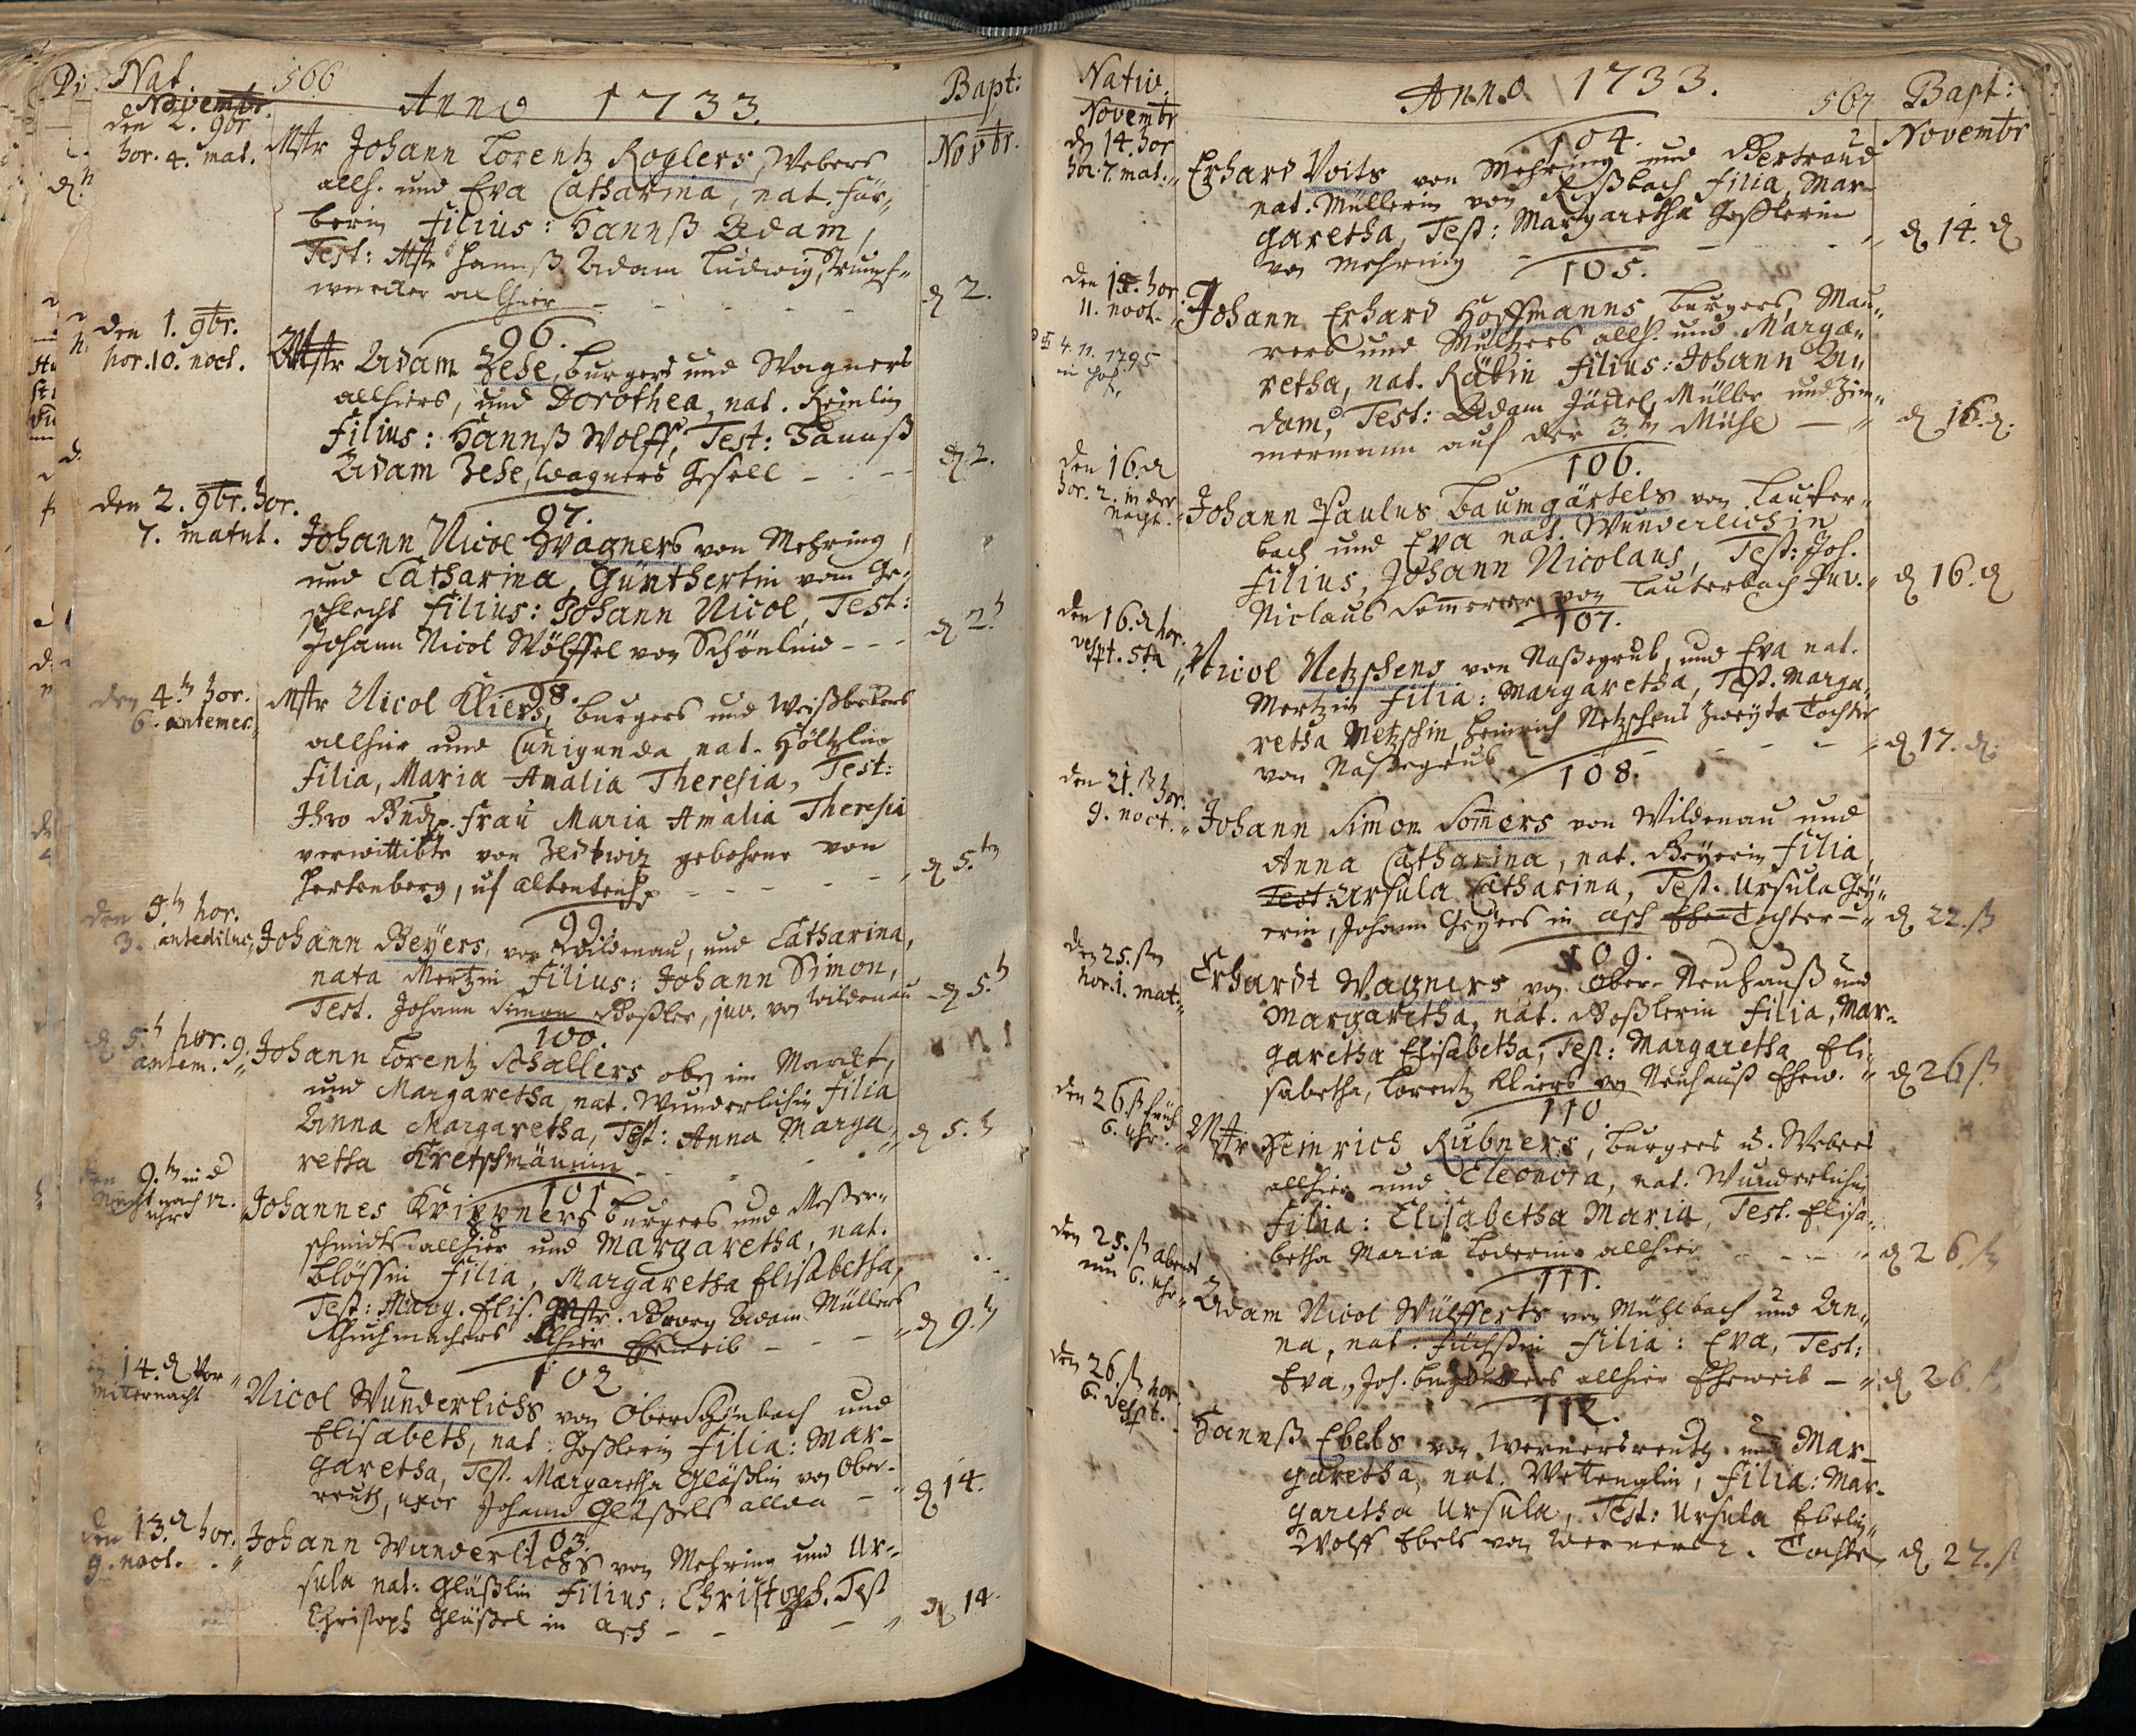 Nat.
566
Anno 1733.
Bapt:
Novembr.
Novbr.
den 2. 9br
hor. 4. mat.
Mstr Johann Lorentz Roglers, Webers
allh. und Eva Catharina, nat. Für„
berin filius: Hannß Adam,
Test: Mstr Hannß Adam Ludwig, Strumpf„
würcker allhier
d 2.
96.
den 1. 9br.
hor. 10. noct.
Mstr Adam Zehe, burgers und Wagners
allhiers, und Dorothea, nat. Reinlin
filius: Hannß Wolff, Test: Hannß
Adam Zehe, Wagners Gesell
d 2.
97.
den 2. 9br. hor.
7. matut.
Johann Nicol Wagners von Mehring,
und Catharina, Günthertin vom Ge„
schlecht filius: Johann Nicol, Test:
Johann Nicol Wölffel von Schönlind
d 2.
98.
den 4.tn hor.
6. antemer.
Mstr Nicol Kliers, burgers und Weißbeckens
allhier und Cunigunda nat. Höltzlin
filia, Maria Amalia Theresia, Test:
Ihro Gnd. Frau Maria Amalia Theresia
verwittibte von Zedtwiz gebohrne von
Hertenberg, uf Altenteich
d 5.tn
99.
den 5.tn hor.
3. antediluc.
Johann Beyers, von Wildenau, und Catharina,
nata Mertzin filius: Johann Simon,
Test. Johann Simon Goßler, juv. von Wildenau
d 5.
100.
d 5. hor. 9.
antem.
Johann Lorentz Schallers oben im Marckt,
und Margaretha, nat. Wunderlichin filia
Anna Margaretha, Test: Anna Marga„
retha Kretschmännin
d 5.
101
den 9.tn in d
Nacht nach 12.
uhr
Johannes Krippners burgers und Messer„
schmidts allhier und Margaretha, nat.
Blössin filia, Margaretha Elisabetha,
Test: Marg. Elis. Mstr. Georg Adam Müllers
Schuchmachers allhier Eheweib
d 9.tn
102
14. d Vor„
mitternacht
Nicol Wunderlichs von Ober Schönbach und
Elisabeth, nat. Goßlerin filia: Mar„
garetha, Test. Margaretha Gläßlin von Ober„
reuth, uxor Johann Gläßels allda
d 14.
103.
den 13. d hor.
9. noct.
Johann Wunderlichs von Mehring und Ur„
sula nat: Gläßlin filius: Christoph. Test
Christoph Gläßel in Asch
d 14.
Nativ.
Anno 1733.
567
Bapt:
Novembr
Novembr
104.
d 14. hor
hor. 7. mat.
Erhard Voits von Mehring und Gertraud
nat. Müllerin von Roßbach filia, Mar„
garetha, Test: Margaretha Goßlerin
von Mehring
d 14. d
105.
den 15. hor.
11. noct.
4. 11. 1795
in Hof
Johann Erhard Hoffmanns, burgers, Mau„
rers und Multzers allh. und Marga„
retha, nat. Räbin filius: Johann A„
dam, Test: Adam Jäckel, Müller und Zim„
mermann auf der 3.tn Mühl
d 16. d.
106.
den 16. d
hor. 2. in der
nacht.
Johann Paulus Baumgärtels von Lauter„
bach und Eva nat. Wunderlichin
filius, Johann Nicolaus, Test: Joh.
Niclauß Sommerer von Lauterbach Juv.
d 16. d
107.
den 16. d hor.
vespt. 5ta
Nicol Netzschens von Naßegrub, und Eva nat.
Mertzin filia: Margaretha, Test. Marga„
retha Netzschin, Heinrich Netzschens zweyte Tochter
von Naßegrub
d 17. d.
108.
den 21. hor.
9. noct.
Johann Simon Somers von Wildenau und
Anna Catharina, nat. Geyerin filia,
Test: Ursula Catharina, Test. Ursula Gey„
erin, Johann Geyers in Asch Tochter
d 22.
109.
den 25.
hor. 1. mat.
Erhardt Wagners von Ober-Neuhauß und
Margaretha, nat. Goßlerin filia, Mar„
garetha Elisabetha, Test: Margaretha Eli„
sabetha, Lorentz Kliers von Neuhauß Ehew.
d 26
110
den 26. früh
6. uhr.
Mstr Heinrich Rubners, burgers u. Webers
allhier und Eleonora, nat. Wunderlichin
filia: Elisabetha Maria, Test. Elisa„
betha Maria Lederin allhier
d 26.
111.
den 25. abends
um 6. uhr
Adam Nicol Wülfferts von Mühlbach und An„
na, nat. Füchßin filia: Eva, Test:
Eva, Joh. allhier Eheweib
d 26.
112.
den 26. hor.
6. vespt.
Hannß Ebels von Wernersreuth und Mar„
garetha, nat. Wettenglin, filia: Mar„
garetha Ursula, Test: Ursula Ebelin
Wolff Ebels von Wernersr. Tochter
d 27.